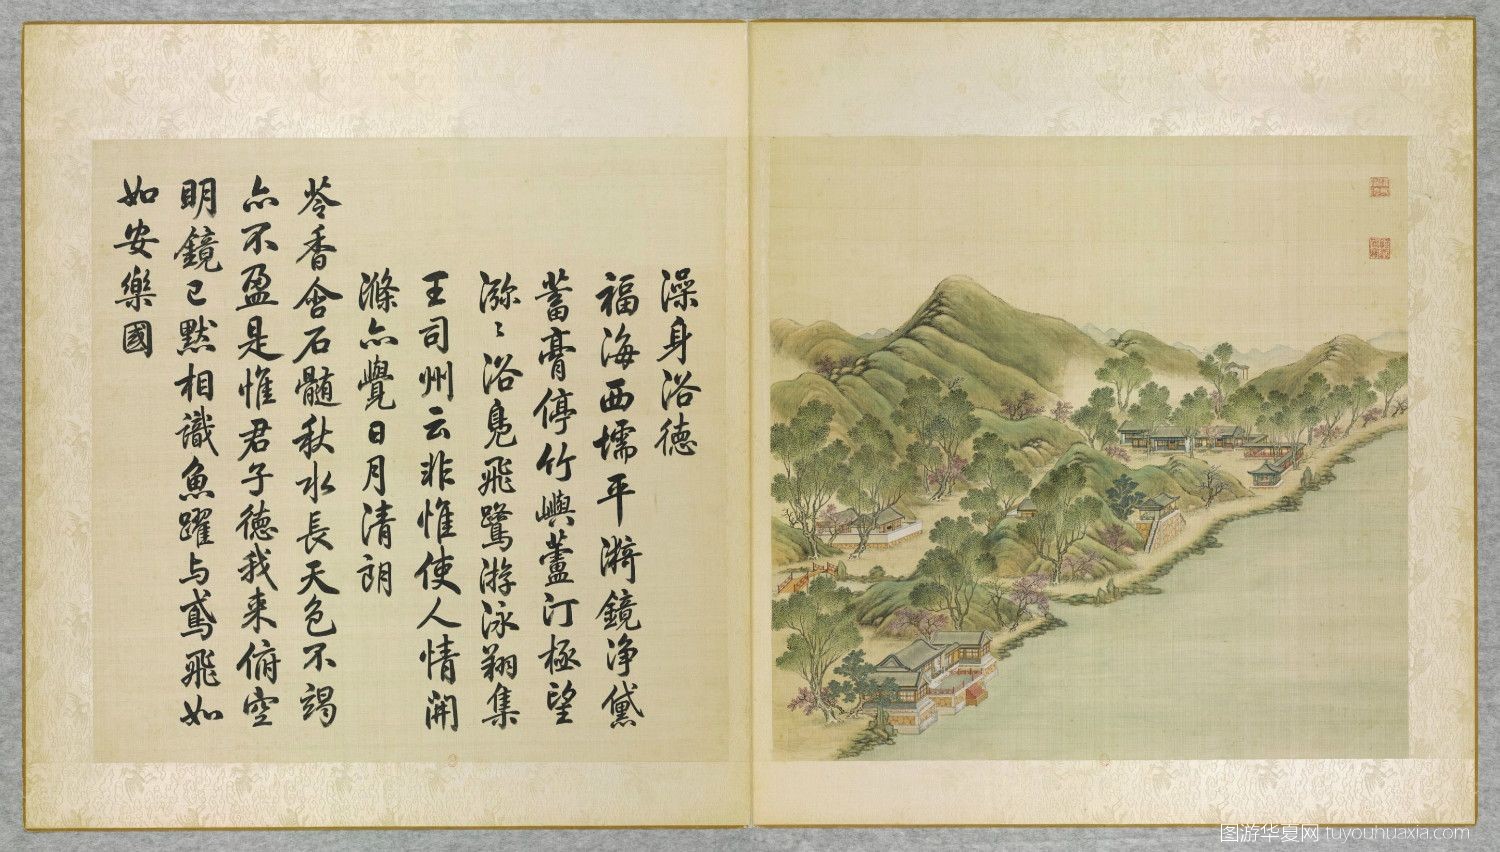 澡身浴德
福海西壖平漪鏡淨黛
蓄膏停竹嶼蘆汀極望
瀰〻浴鳧飛鷺游泳翔集
王司州云非惟使人情開
滌亦覺日月清朗
苓香含石髓秋水長天色不竭
亦不盈是惟君子德我来俯空
明鏡已默相識魚躍与鳶飛如
如安樂國
图游华夏网 tuyouhuaxia.com